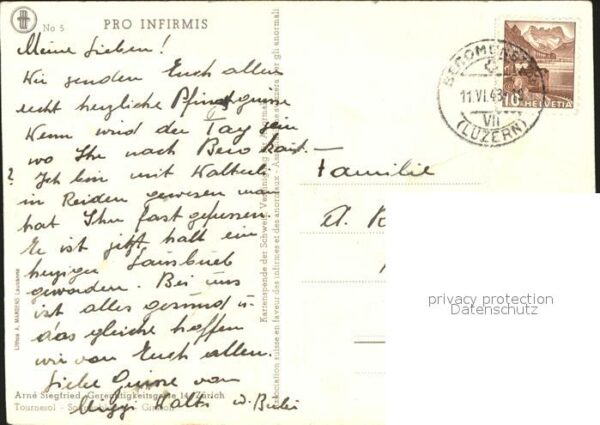 No 5 PRO INFIRMIS
Meine Lieben!
Wir senden Euch allen
recht herzliche Pfingstgrüsse
Wenn wird der Tag sein
wo Ihr nach Bero kommt.
? Ich bin mit Walterli
in Reiden gewesen man
hat Ihn fast gefressen.
Er ist jetzt halt ein
herziger Lausbueb
geworden. Bei uns
ist alles gesund u.
das gleiche hoffen
wir von Euch allen.
Liebe Grüsse von
Walti u.
Arné Siegfried, Gerechtigkeitsgasse 14, Zürich
Tournesol -
Lithos A. MARSENS Lausanne
Kartenspende der Schweiz. Vereinigung für Anormale
Association suisse en faveur des infirmes et des anormaux -
BEROMÜNSTER
11.VI.43
VII
(LUZERN)
10 HELVETIA
Familie
A.
privacy protection
Datenschutz